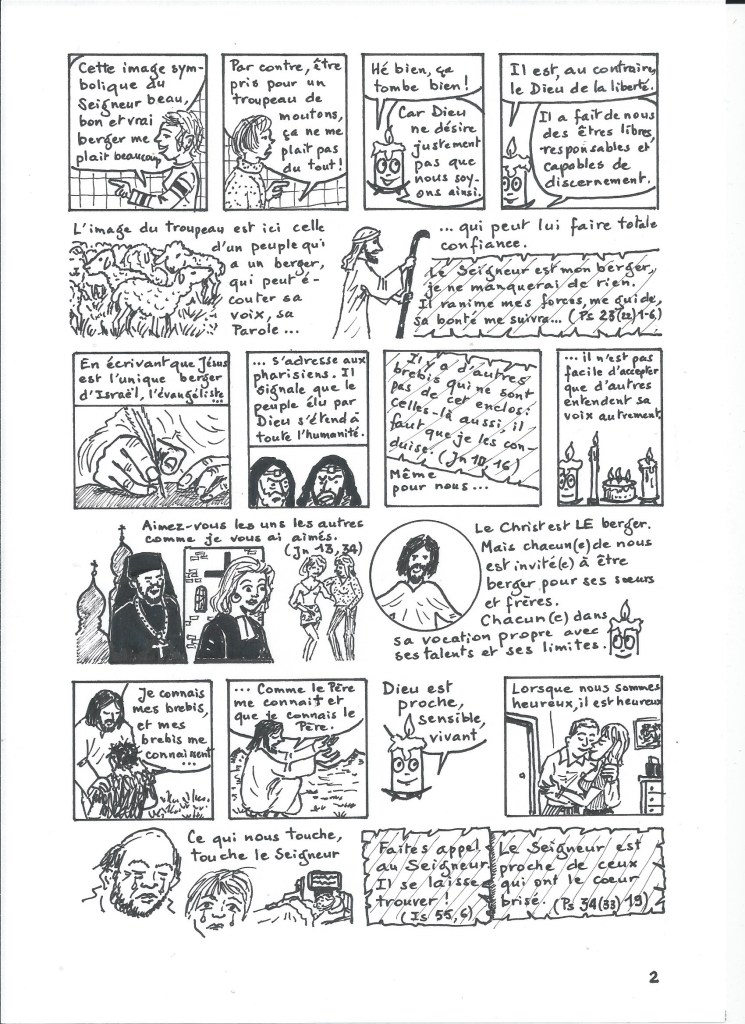 Cette image sym-
bolique du
Seigneur beau,
bon et vrai
berger me
plaît beaucoup
Par contre, être
pris pour un
troupeau de
moutons,
ça ne me
plaît pas
du tout!
Hé bien, ça
tombe bien!
Car Dieu
ne désire
justement
pas que
nous soy-
ons ainsi.
Il est, au contraire,
le Dieu de la liberté.
Il a fait de nous
des êtres libres,
responsables et
capables de
discernement.
L'image du troupeau est ici celle
d'un peuple qui
a un berger,
qui peut é-
couter sa
voix, sa
Parole...
... qui peut lui faire totale
confiance.
Le Seigneur est mon berger,
je ne manquerai de rien.
Il ranime mes forces, me guide,
sa bonté me suivra... (Ps 23(22)1-6)
En écrivant que Jésus
est l'unique berger
d'Israël, l'évangéliste...
... s'adresse aux
pharisiens. Il
signale que le
peuple élu par
Dieu s'étend à
toute l'humanité.
Il y a d'autres
brebis qui ne sont
pas de cet enclos:
celles-là aussi, il
faut que je les con-
duise. (Jn 10,16)
Même
pour nous...
... il n'est pas
facile d'accepter
que d'autres
entendent sa
voix autrement.
Aimez-vous les uns les autres
comme je vous ai aimés.
(Jn 13,34)
Le Christ est LE berger.
Mais chacun(e) de nous
est invité(e) à être
berger pour ses sœurs
et frères.
Chacun(e) dans
sa vocation propre avec
ses talents et ses limites.
Je connais
mes brebis,
et mes
brebis me
connaissent
...
... Comme le Père
me connaît et
que je connais le
Père.
Dieu est
proche,
sensible,
vivant
Lorsque nous sommes
heureux, il est heureux
Ce qui nous touche,
touche le Seigneur
Faites appel
au Seigneur
Il se laisse
trouver!
(Is 55,6)
Le Seigneur est
proche de ceux
qui ont le cœur
brisé. (Ps 34(33)19)
2